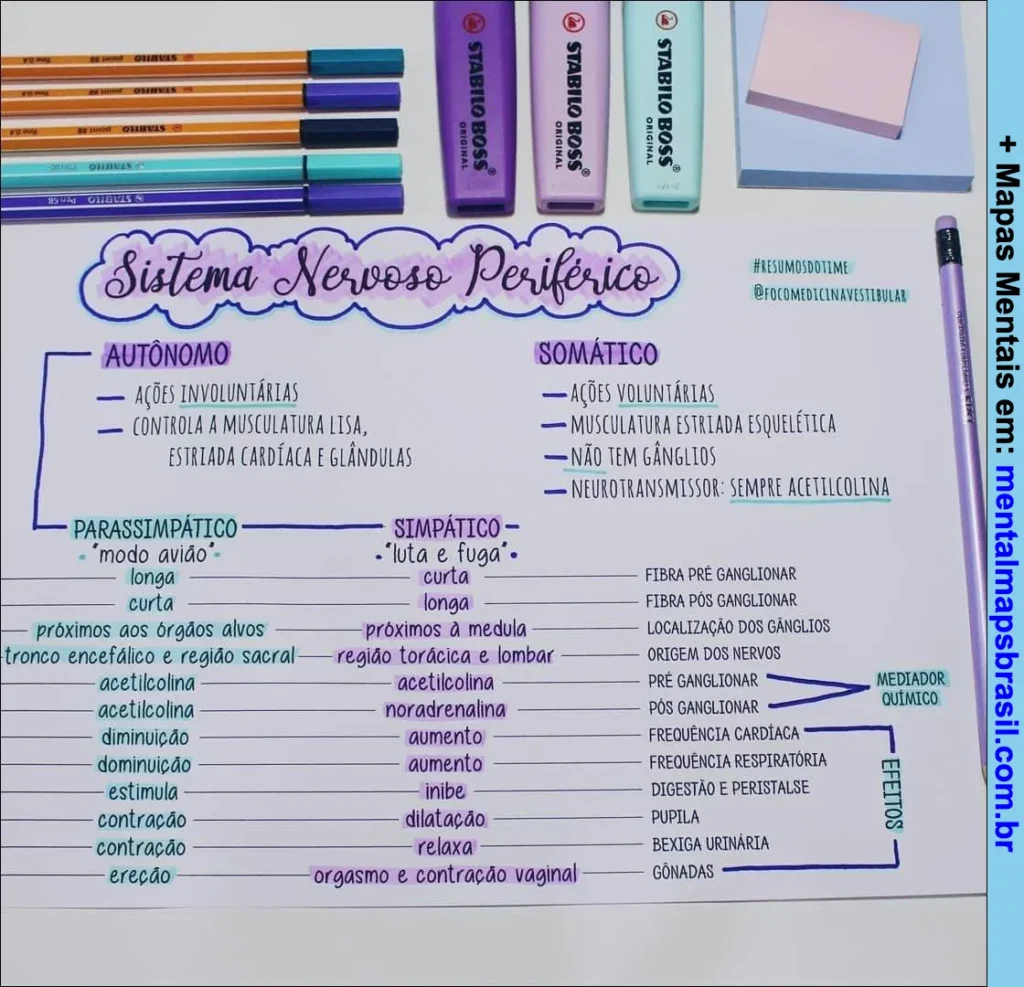 STABILO point 88 fine 0,4
STABILO point 88 fine 0,4
STABILO point 88 fine 0,4
STABILO
STABILO Pen 68
STABILO BOSS® ORIGINAL
STABILO BOSS® ORIGINAL
STABILO BOSS® ORIGINAL
Sistema Nervoso Periférico
#RESUMOSDOTIME
@FOCOMEDICINAVESTIBULAR
AUTÔNOMO
— AÇÕES INVOLUNTÁRIAS
— CONTROLA A MUSCULATURA LISA,
ESTRIADA CARDÍACA E GLÂNDULAS
SOMÁTICO
— AÇÕES VOLUNTÁRIAS
— MUSCULATURA ESTRIADA ESQUELÉTICA
— NÃO TEM GÂNGLIOS
— NEUROTRANSMISSOR: SEMPRE ACETILCOLINA
PARASSIMPÁTICO SIMPÁTICO
"modo avião" "luta e fuga"
longa curta FIBRA PRÉ GANGLIONAR
curta longa FIBRA PÓS GANGLIONAR
próximos aos órgãos alvos próximos à medula LOCALIZAÇÃO DOS GÂNGLIOS
tronco encefálico e região sacral região torácica e lombar ORIGEM DOS NERVOS
acetilcolina acetilcolina PRÉ GANGLIONAR
acetilcolina noradrenalina PÓS GANGLIONAR
MEDIADOR
QUÍMICO
diminuição aumento FREQUÊNCIA CARDÍACA
dominuição aumento FREQUÊNCIA RESPIRATÓRIA
estimula inibe DIGESTÃO E PERISTALSE
contração dilatação PUPILA
contração relaxa BEXIGA URINÁRIA
ereção orgasmo e contração vaginal GÔNADAS
EFEITOS
+ Mapas Mentais em: mentalmapsbrasil.com.br